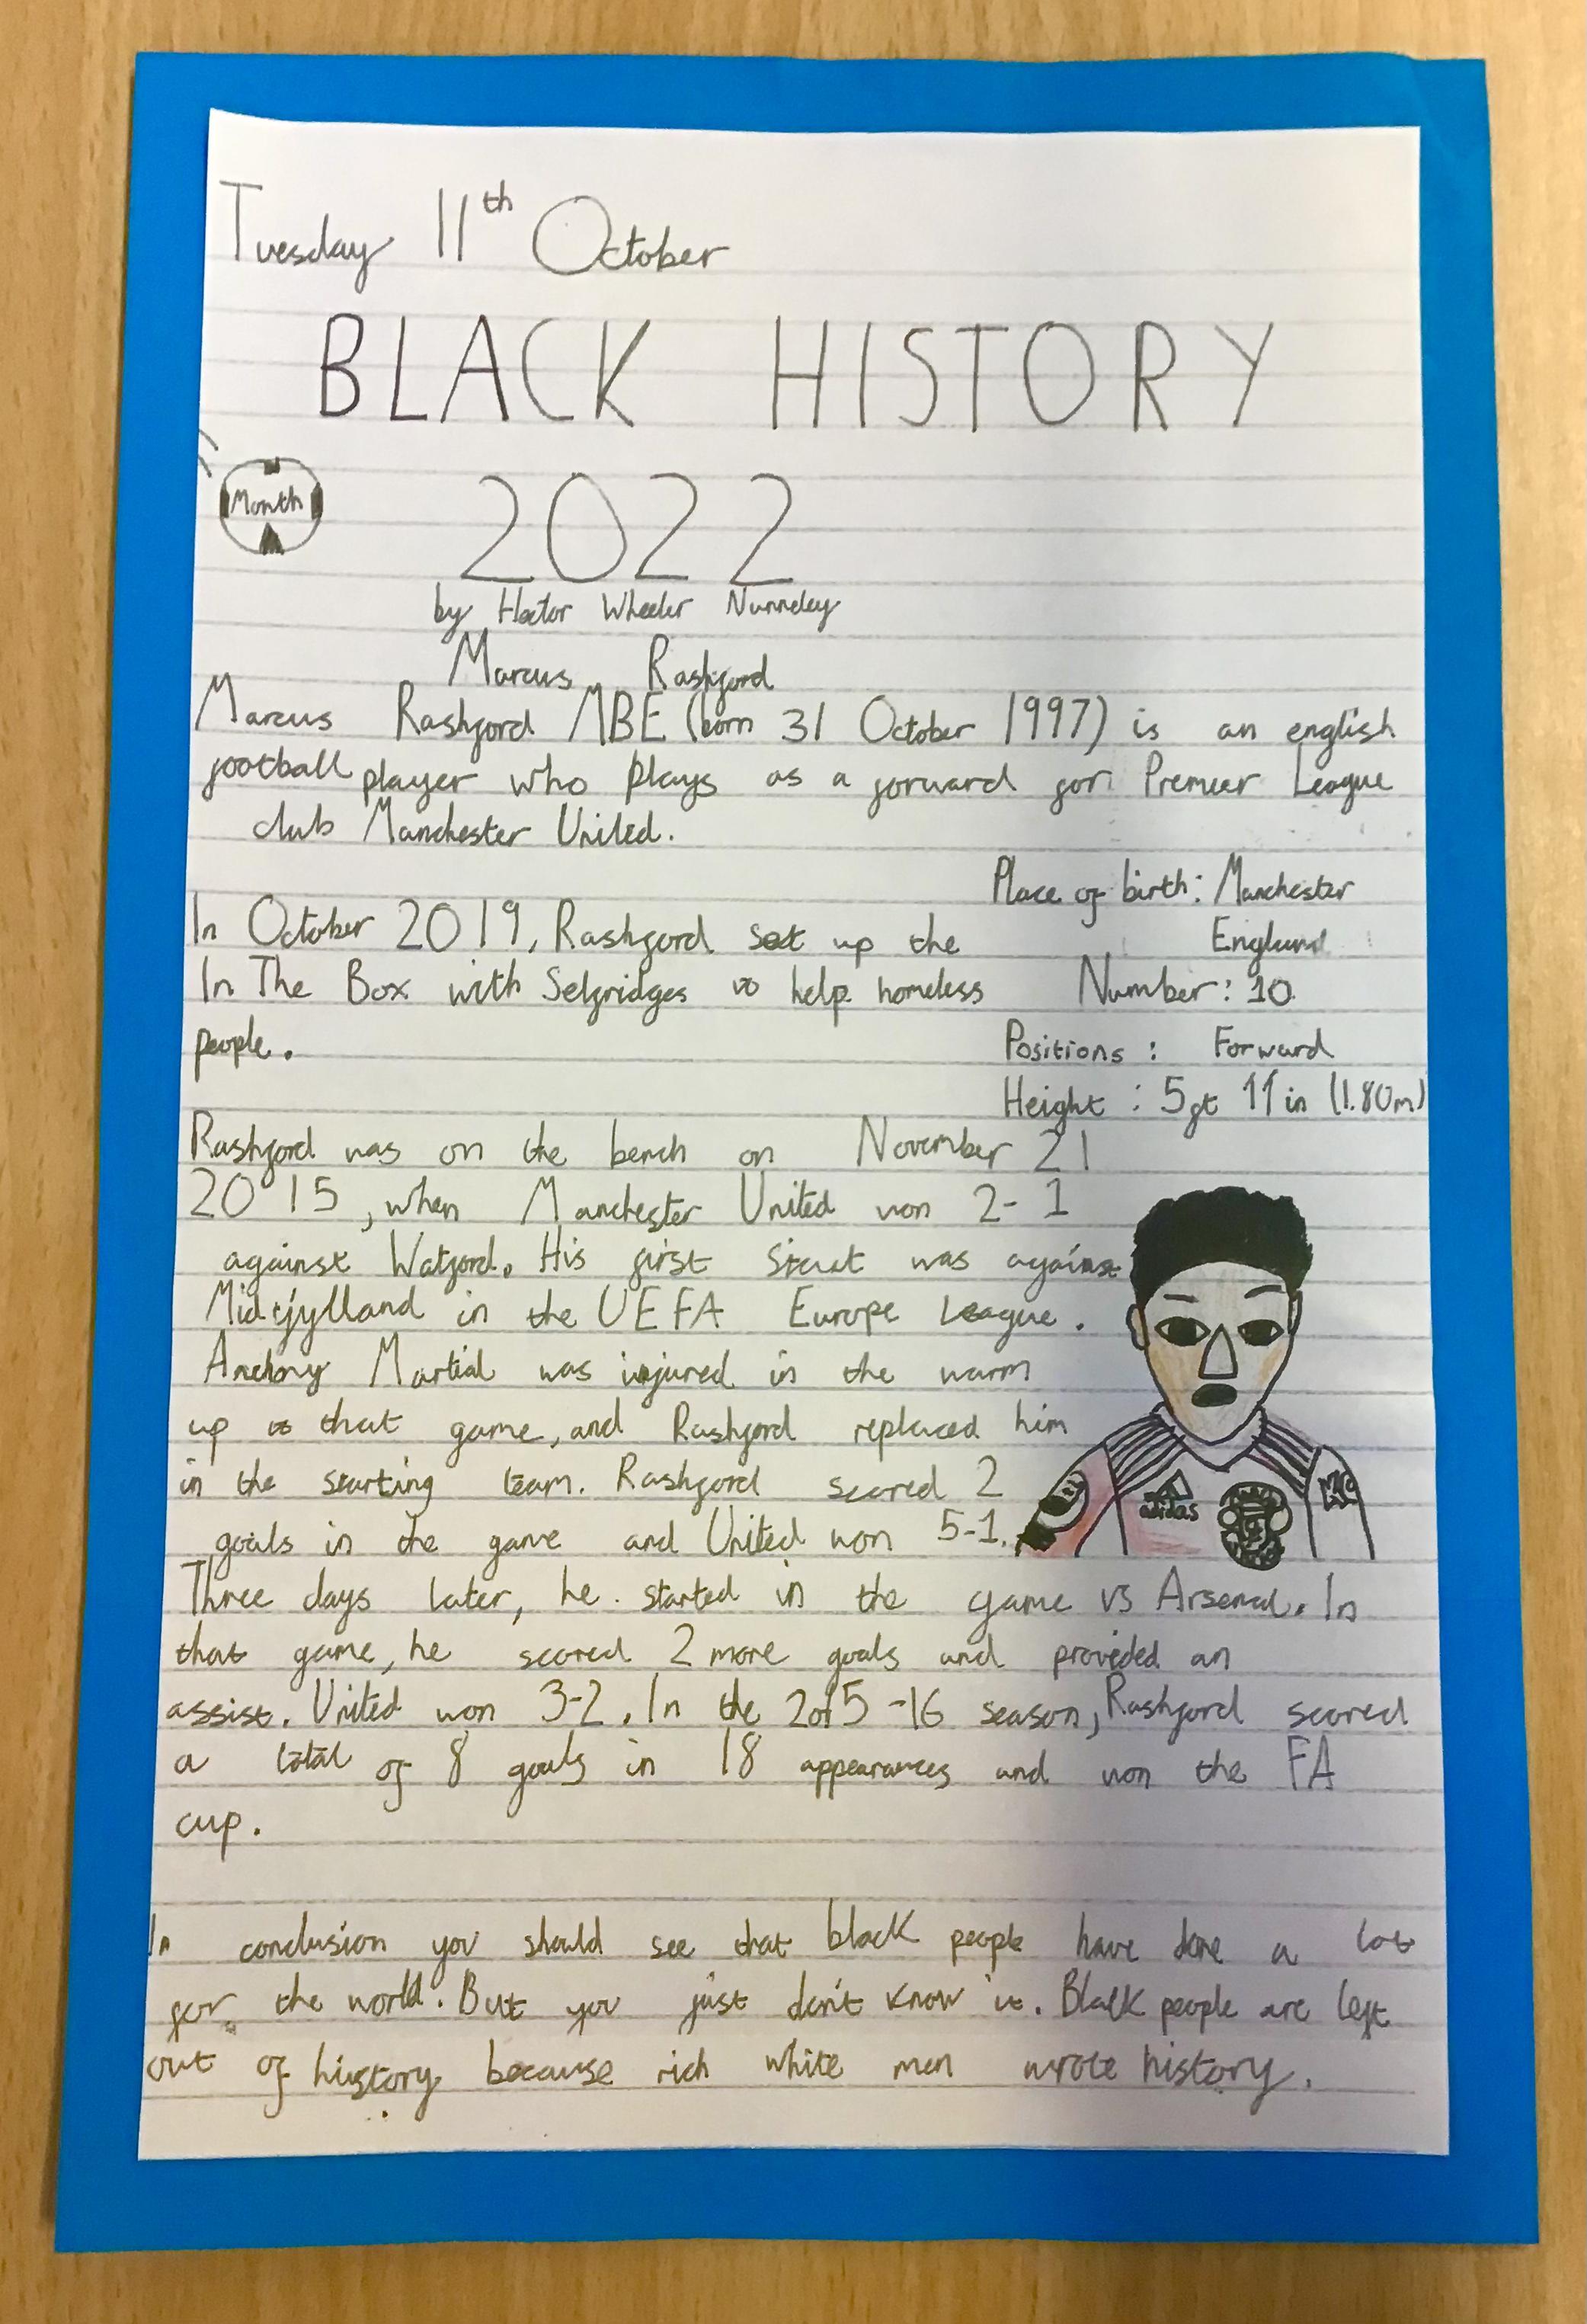 Tuesday 11th October
BLACK HISTORY
Month
2022
by Hector Wheeler Nunneley
Marcus Rashford
Marcus Rashford MBE (born 31 October 1997) is an english
football player who plays as a forward for Premier League
club Manchester United.
Place of birth: Manchester
England
Number: 10
Positions: Forward
Height: 5ft 11in (1.80m)
In October 2019, Rashford set up the
In The Box with Selfridges to help homeless
people.
Rashford was on the bench on November 21
2015, when Manchester United won 2-1
against Watford. His first start was against
Midtjylland in the UEFA Europe League.
Martial was injured in the warm
up to that game, and Rashford replaced him
in the starting team. Rashford scored 2
goals in the game and United won 5-1.
adidas
Three days later, he started in the game vs Arsenal. In
that game, he scored 2 more goals and provided an
assist. United won 3-2. In the 2015-16 season, Rashford scored
a total of 8 goals in 18 appearances and won the FA
cup.
In conclusion you should see that black people have done a lot
for the world. But you just don't know it. Black people are left
out of history because rich white men wrote history.